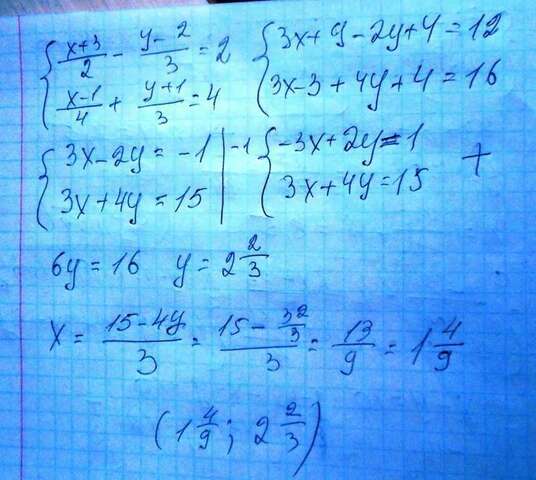 { (x+3)/2 - (y-2)/3 = 2
{ (x-1)/4 + (y+1)/3 = 4
{ 3x+9-2y+4=12
{ 3x-3+4y+4=16
{ 3x-2y=-1 | -1
{ 3x+4y=15 |
{ -3x+2y=1
{ 3x+4y=15 +
6y=16 y=2 2/3
x = (15-4y)/3 = (15 - 32/3)/3 = 13/9 = 1 4/9
(1 4/9; 2 2/3)